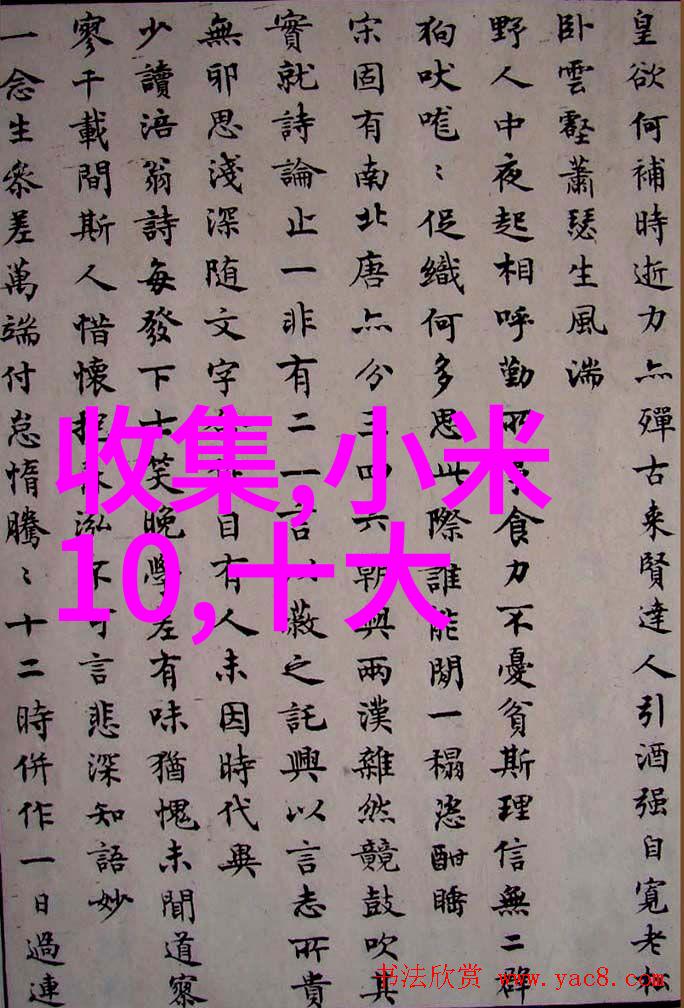 皇欲何補時逝力亦殫古来賢達人引酒强自寛老
卧雲壑蕭瑟生風湍
野人中夜起相呼勤所事食力不憂貧斯理信無二群
狗吠嘊〻促織何多思此際誰能閑一榻恣酣睡
宋固有南北唐亦分三四六朝與兩漢雜然競鼓吹其
實就詩論止一非有二一言以蔽之託興以言志所貴
無邪思淺深随文字目有人未因時代異
少讀涪翁詩每發下士笑晚學差有味猶愧未聞道寥
寥千載間斯人惜懷抱泓不可言悲深知語妙
一念生參差萬端付怠惰騰〻十二時併作一日過連
收集,小米
10,十大
书法欣赏 www.yac8.com